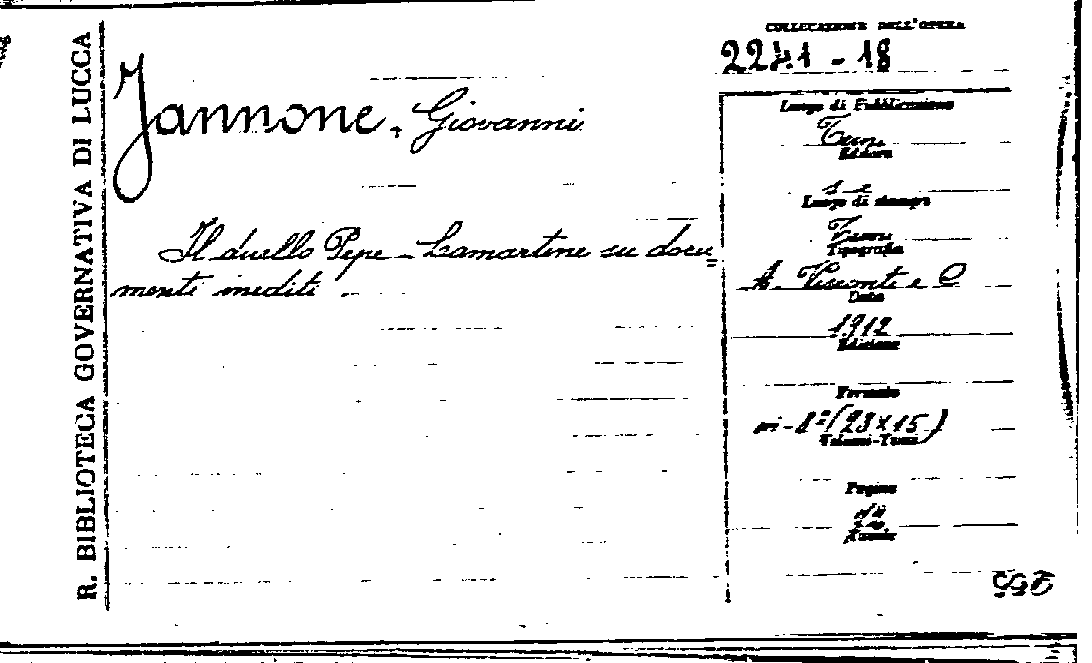 R. BIBLIOTECA GOVERNATIVA DI LUCCA
COLLOCAZIONE DELL'OPERA
2241 - 18
Jannone, Giovanni
Il duello Pepe - Lamartine su docu=
menti inediti
Luogo di Pubblicazione
Editore
s. e.
Luogo di stampa
Tipografia
A. Visconti e C
Data
1912
Edizione
Formato
in-8º (23x15)
Volumi-Tomi
Pagine